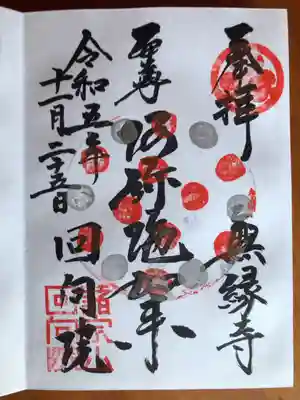 奉拝 無縁寺
本尊 阿弥陀如来
令和五年 回向院
十一月二十五日